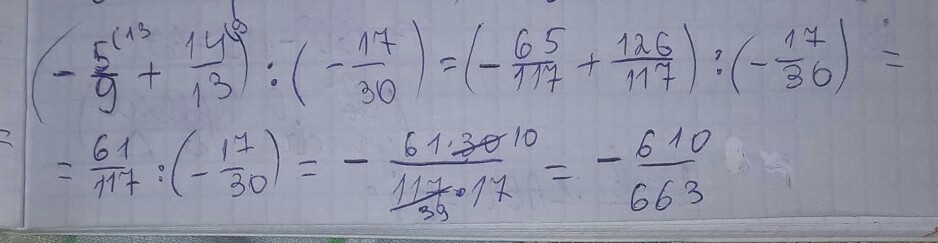 (- 5/9 (13 + 14/13 (9) : (- 17/30) = (- 65/117 + 126/117) : (- 17/30) =
= 61/117 : (- 17/30) = - 61·30 10 / 117·17 39 = - 610/663